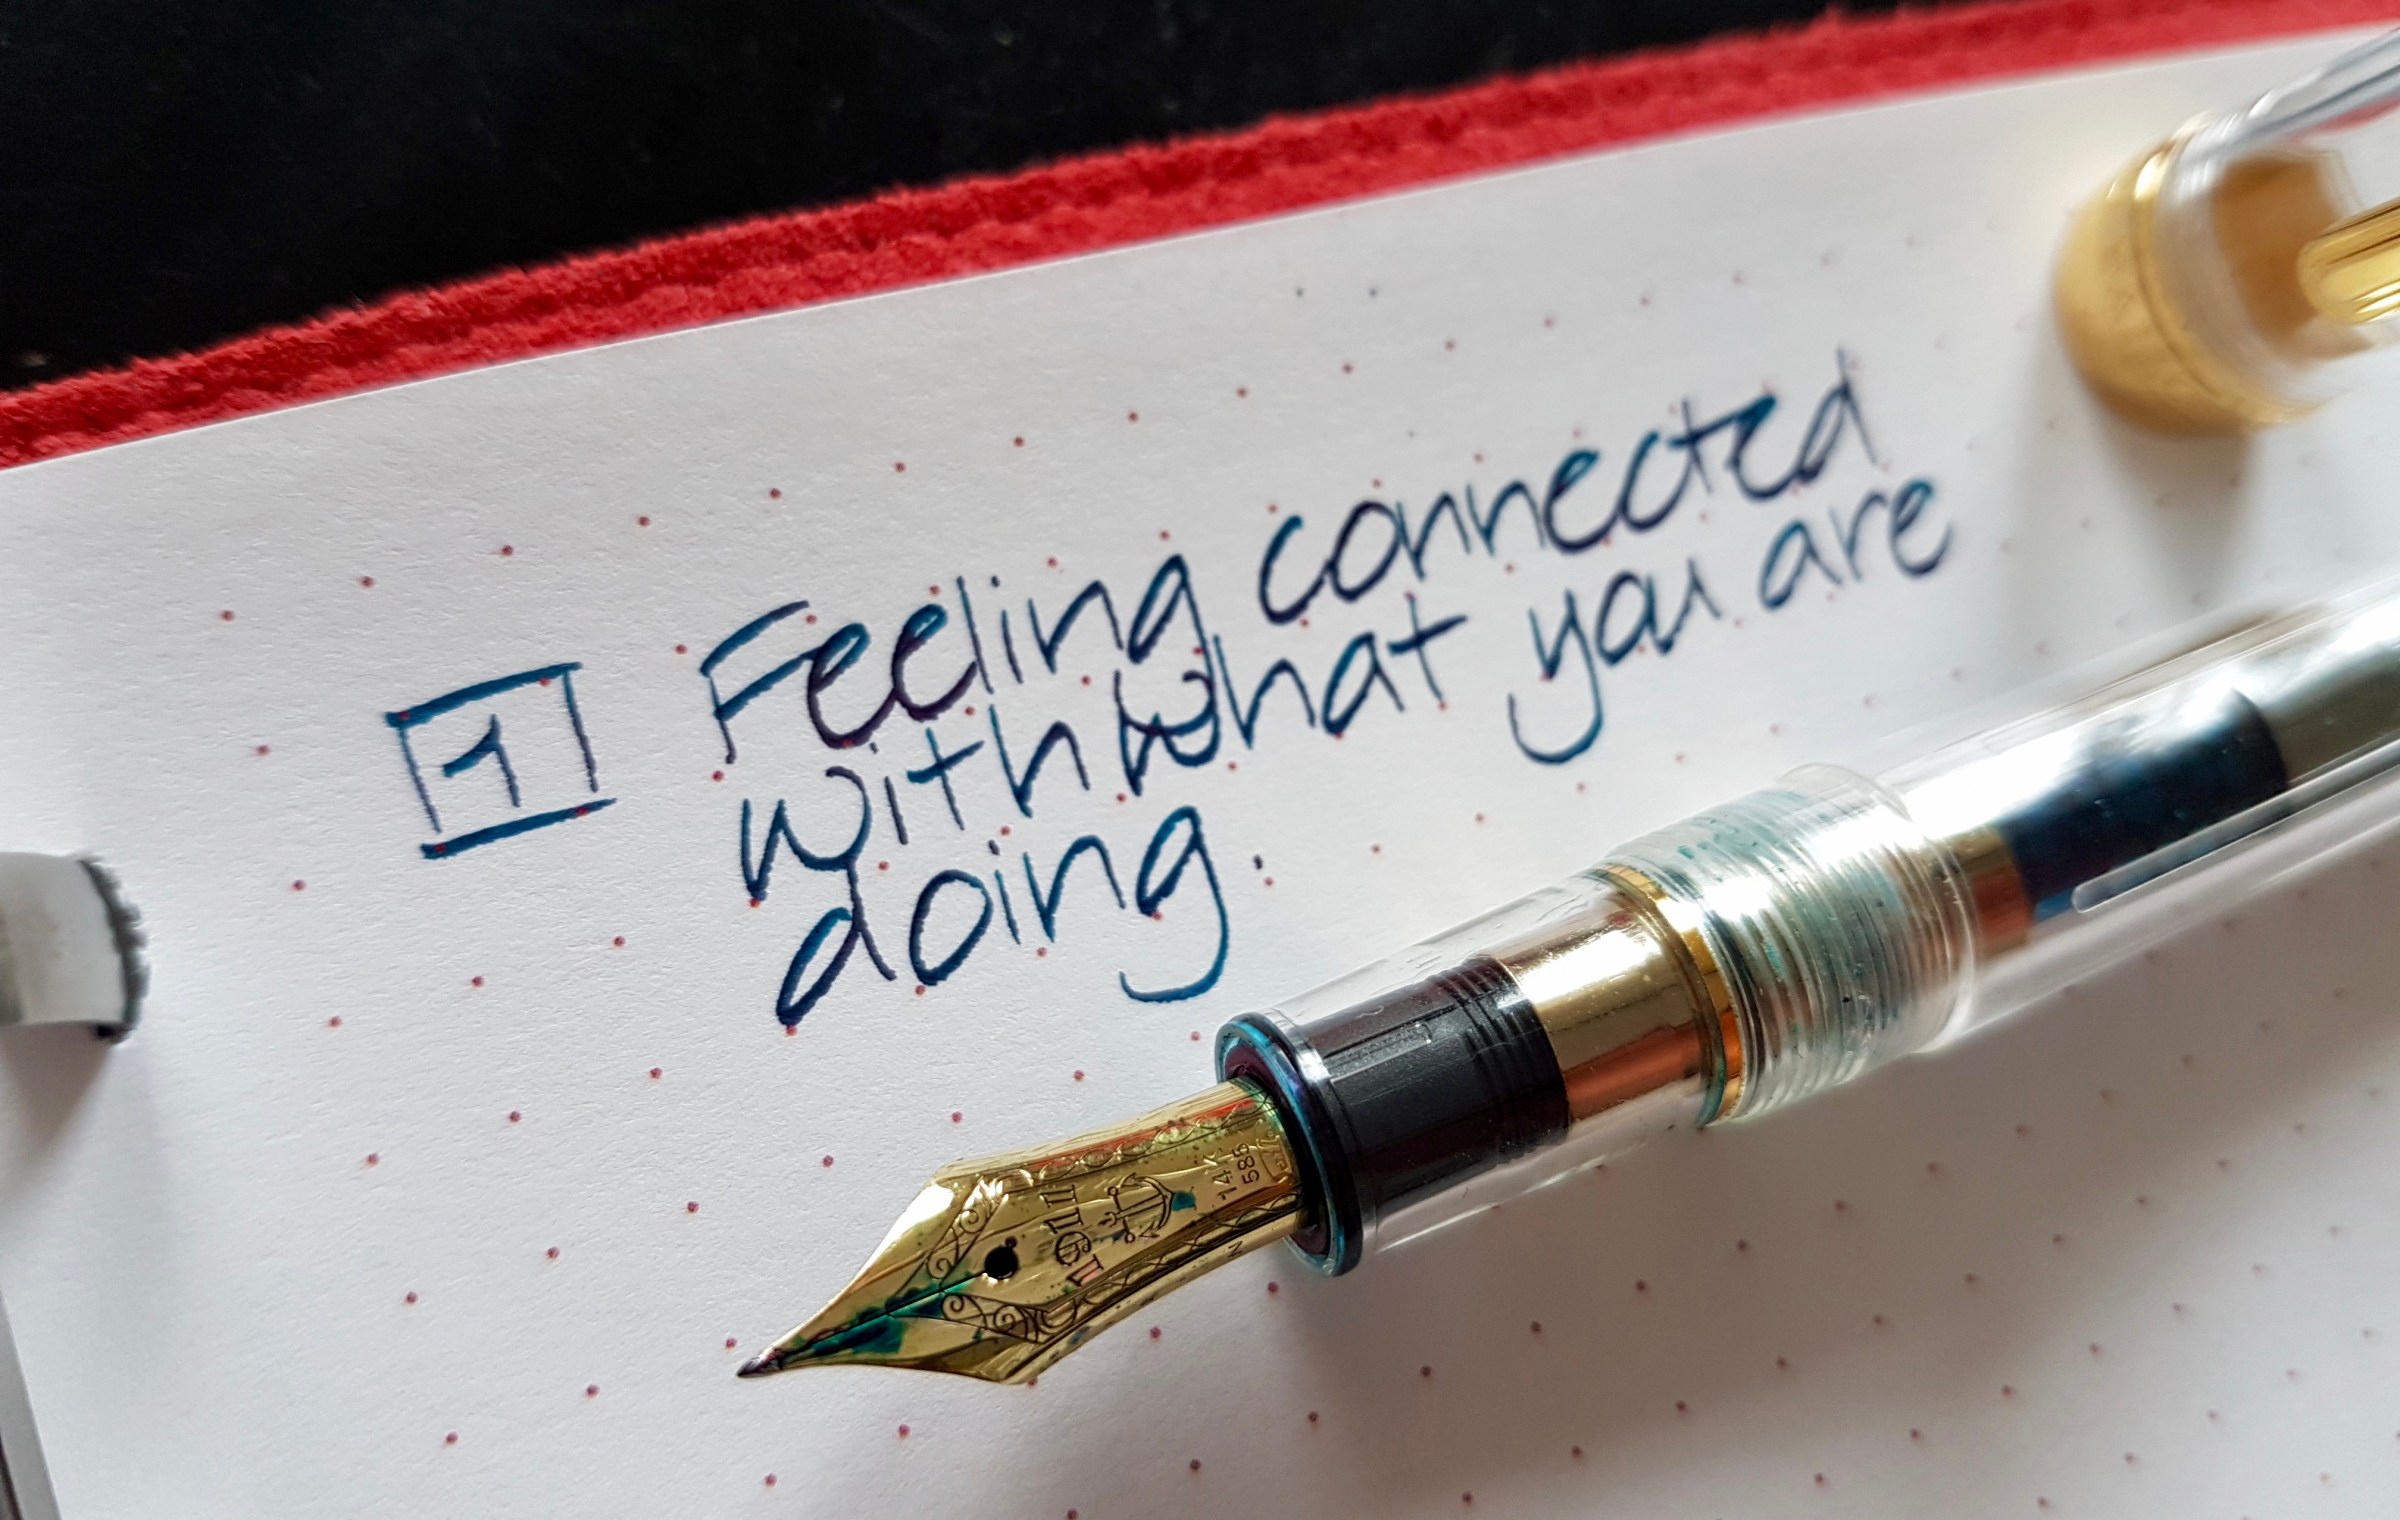 1 Feeling connected
with what you are
doing.
1911
14K
585